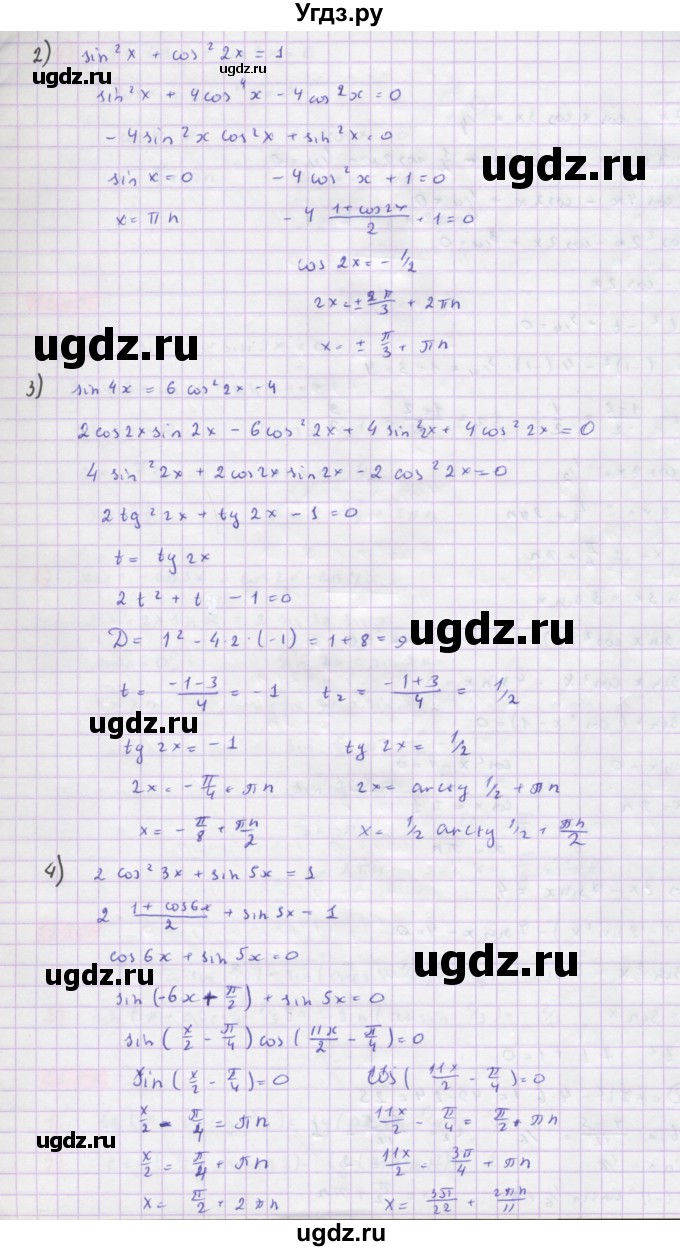 Угдз.ру
2) sin²x + cos²2x = 1
ugdz.ru
ugdz.ru
sin²x + 4cos⁴x - 4cos²x = 0
- 4sin²x cos²x + sin²x = 0
ugdz.ru
sin x = 0   - 4cos²x + 1 = 0
x = πn   - 4 (1+cos2x)/2 + 1 = 0
cos 2x = - 1/2
2x = ± 2π/3 + 2πn
ugdz.ru
x = ± π/3 + πn
3) sin 4x = 6 cos²2x - 4
2cos2x sin2x - 6cos²2x + 4sin²2x + 4cos²2x = 0
4 sin²2x + 2cos2x sin2x - 2cos²2x = 0
2tg²2x + tg2x - 1 = 0
t = tg2x
2t² + t - 1 = 0
ugdz.ru
D = 1² - 4·2·(-1) = 1 + 8 = 9
t = (-1-3)/4 = -1   t₂ = (-1+3)/4 = 1/2
ugdz.ru
tg 2x = -1   tg 2x = 1/2
2x = - π/4 + πn   2x = arctg 1/2 + πn
x = - π/8 + πn/2   x = 1/2 arctg 1/2 + πn/2
4) 2cos²3x + sin5x = 1
2 (1+cos6x)/2 + sin5x = 1
cos6x + sin5x = 0
ugdz.ru
ugdz.ru
sin(-6x + π/2) + sin5x = 0
sin(x/2 - π/4) cos(11x/2 - π/4) = 0
sin(x/2 - π/4) = 0   cos(11x/2 - π/4) = 0
x/2 - π/4 = πn   11x/2 - π/4 = π/2 + πn
ugdz.ru
x/2 = π/4 + πn   11x/2 = 3π/4 + πn
x = π/2 + 2πn   x = 3π/22 + 2πn/11
ugdz.ru